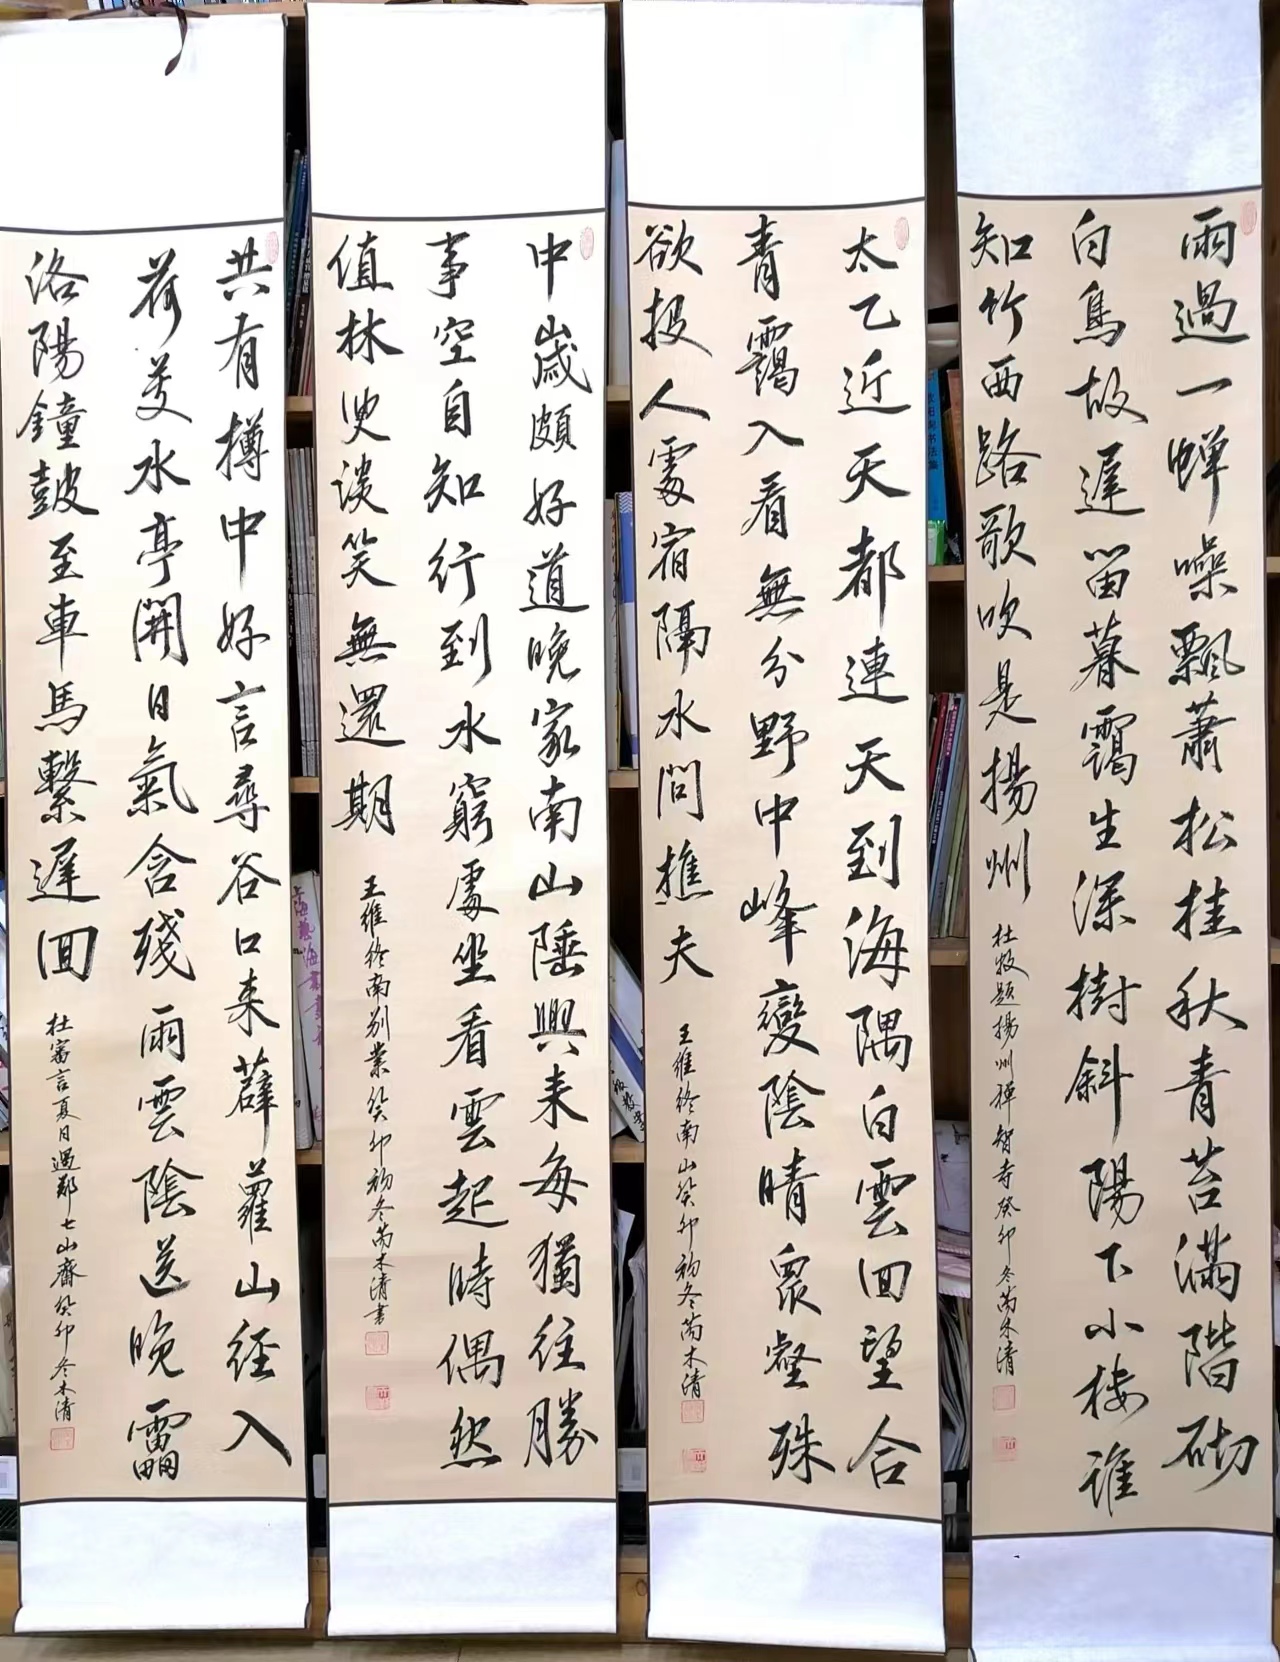 雨過一蟬噪飄蕭松桂秋青苔滿階砌
白鳥故遲留暮靄生深樹斜陽下小樓誰
知竹西路歌吹是揚州
杜牧題揚州禪智寺癸卯冬苪木清
太乙近天都連天到海隅白雲回望合
青靄入看無分野中峰變陰晴眾壑殊
欲投人處宿隔水問樵夫
王維終南山癸卯初冬苪木清
中歲頗好道晚家南山陲興来每獨往勝
事空自知行到水窮處坐看雲起時偶然
值林叟談笑無還期
王維終南别業癸卯初冬苪木清書
共有樽中好言尋谷口来薜蘿山徑入
荷芰水亭開日氣含殘雨雲陰送晚雷
洛陽鐘鼓至車馬繫遲回
杜審言夏日過鄭七山齋癸卯冬木清